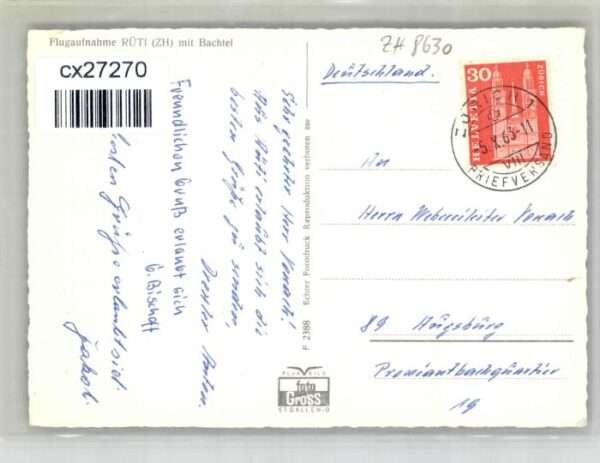 Flugaufnahme RÜTI (ZH) mit Bachtel
cx27270
ZH 8630
Deutschland.
30
HELVETIA
ZÜRICH
ZÜRICH 1
5.X.63-11
VIII
BRIEFVERSAND
Sehr geehrter Herr
Aus Rüti erlaubt sich die
besten Grüße zu senden
Freundlichen Gruß erlaubt sich
G. Bischoff
Grüße erlaubt sich
Jakob.
An
Herrn Webereileiter
89 Augsburg
Proviantbachquartier
19
P 2388 Echter Fotodruck Reproduktion verboten
FLUGBILD
foto
Gross
ST. GALLEN-O